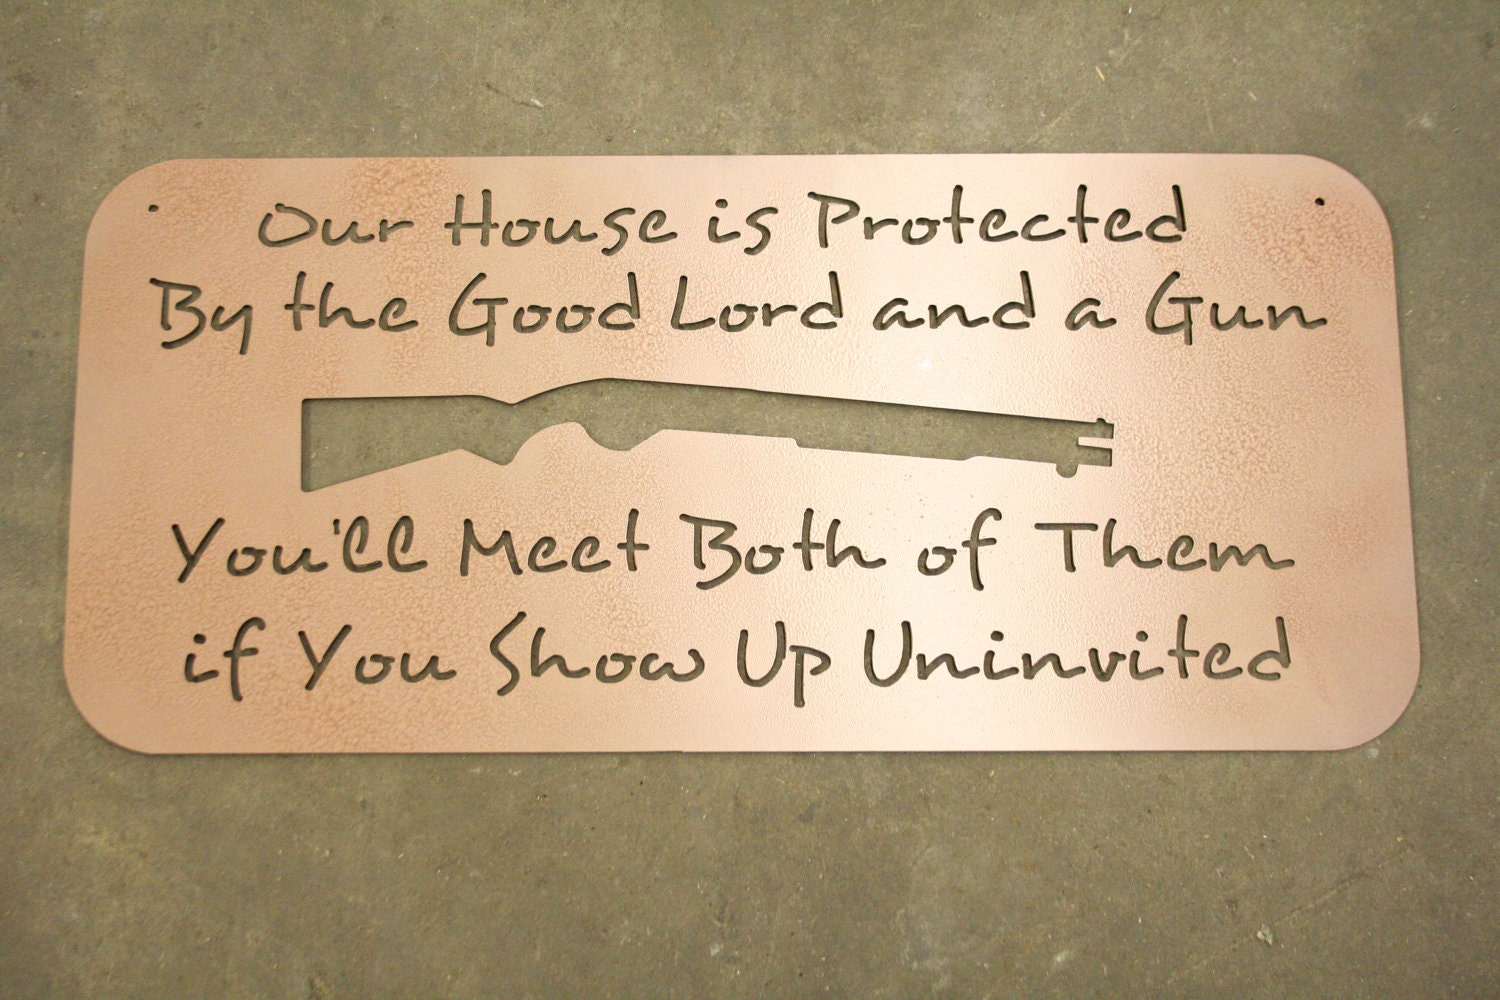 Our House is Protected
By the Good Lord and a Gun
You'll Meet Both of Them
if You Show Up Uninvited